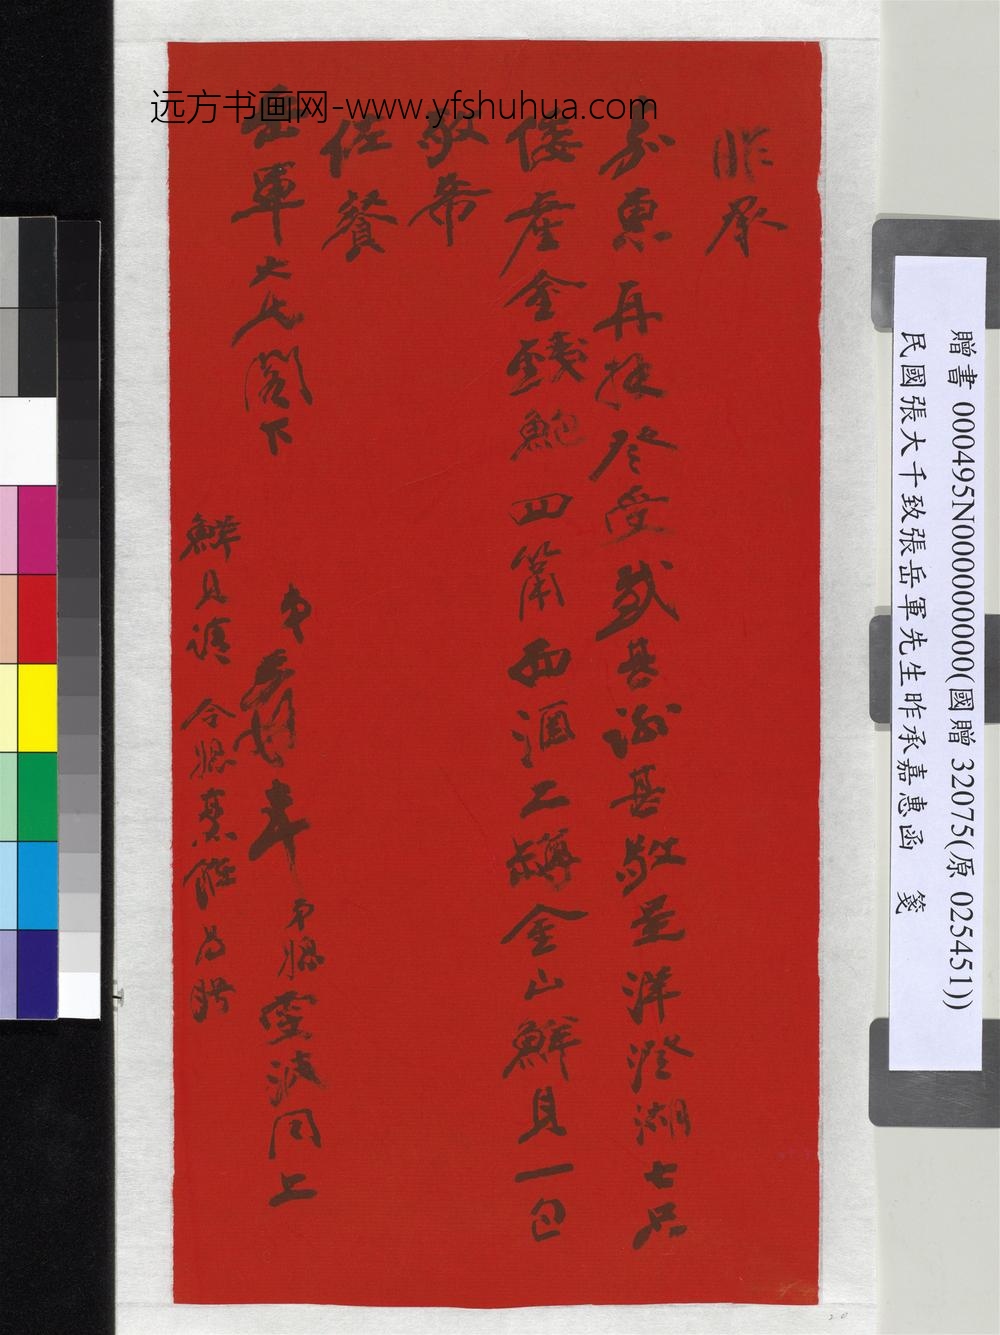 远方书画网-www.yfshuhua.com
昨承
嘉惠再拜登受感甚謝甚敬呈洋澄湖七只
倭産金錢鮑四筩西洒工罐金山鮮貝一包
敬希
佐餐
岳軍大兄閣下
弟爰頓首弟婦雯波同上
鮮貝請令媳蒸
贈書 000495N000000000(國贈 32075(原 025451))
民國張大千致張岳軍先生昨承嘉惠函 箋